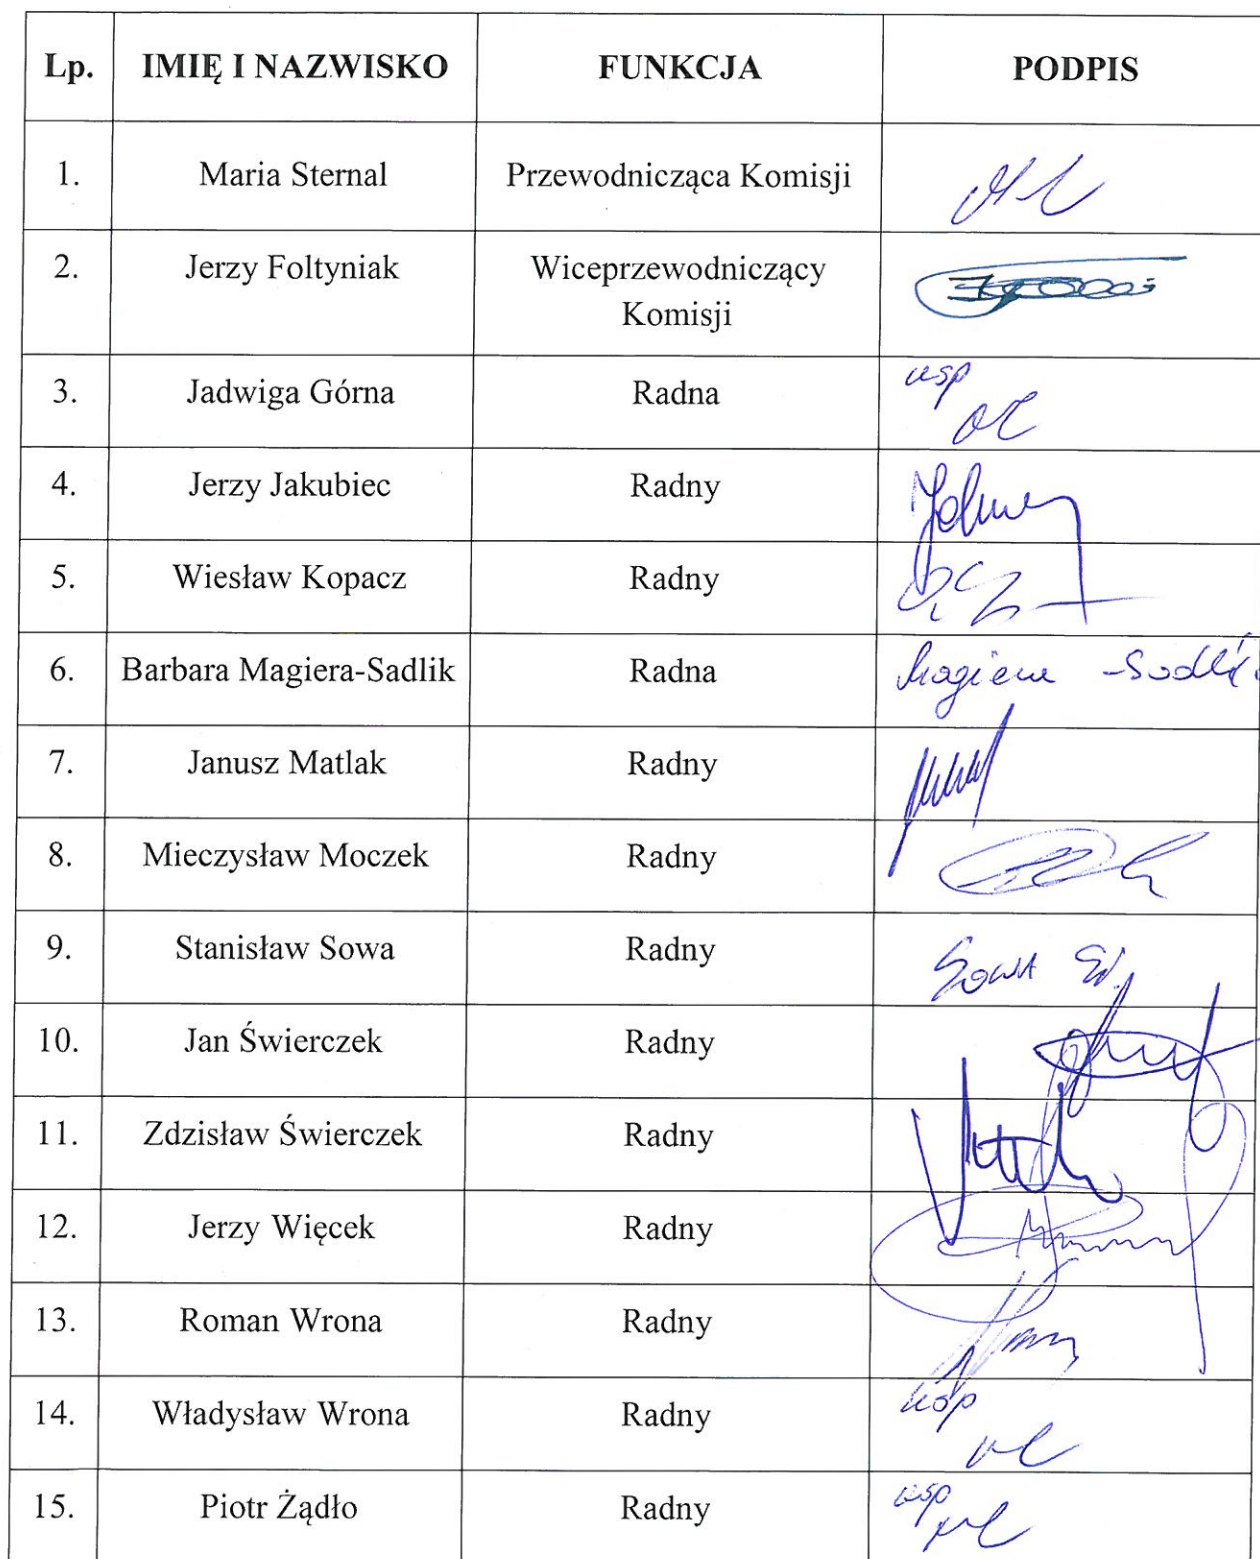 Lp. IMIĘ I NAZWISKO FUNKCJA PODPIS
1. Maria Sternal Przewodnicząca Komisji
2. Jerzy Foltyniak Wiceprzewodniczący
Komisji
3. Jadwiga Górna Radna usp
4. Jerzy Jakubiec Radny
5. Wiesław Kopacz Radny
6. Barbara Magiera-Sadlik Radna Magiera-Sadlik
7. Janusz Matlak Radny
8. Mieczysław Moczek Radny
9. Stanisław Sowa Radny Sowa St.
10. Jan Świerczek Radny
11. Zdzisław Świerczek Radny
12. Jerzy Więcek Radny
13. Roman Wrona Radny
14. Władysław Wrona Radny usp
15. Piotr Żądło Radny usp